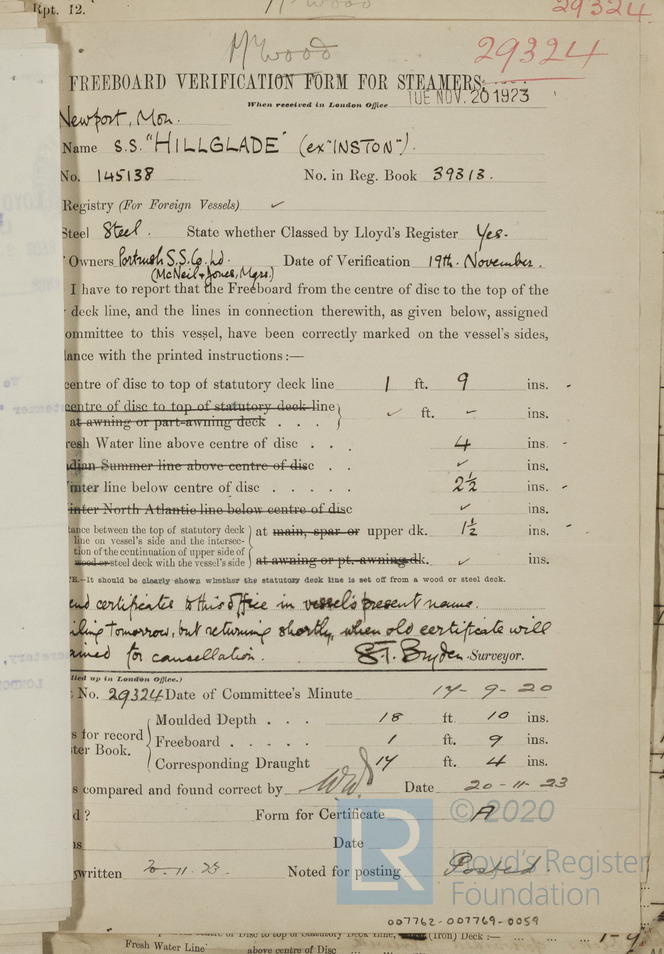 Rpt. 12.
McWood
29324
McWood
29324
FREEBOARD VERIFICATION FORM FOR STEAMERS.
When received in London Office TUE NOV. 20 1923
Newport, Mon.
Name S.S. "HILLGLADE" (ex "INSTON").
No. 145138 No. in Reg. Book 39313.
Registry (For Foreign Vessels) ✓
Steel Steel. State whether Classed by Lloyd's Register Yes.
Owners Portrush S.S. Co. Ld. Date of Verification 19th November.
(McNeil & Jones, Mgrs)
I have to report that the Freeboard from the centre of disc to the top of the
deck line, and the lines in connection therewith, as given below, assigned
ommittee to this vessel, have been correctly marked on the vessel's sides,
lance with the printed instructions:—
centre of disc to top of statutory deck line 1 ft. 9 ins.
centre of disc to top of statutory deck line
at awning or part-awning deck . . . ✓ ft. – ins.
resh Water line above centre of disc . . . 4 ins.
ndian Summer line above centre of disc . . ✓ ins.
inter line below centre of disc . . . . . 2½ ins.
inter North Atlantic line below centre of disc ✓ ins.
tance between the top of statutory deck
line on vessel's side and the intersec-
tion of the continuation of upper side of
wood or steel deck with the vessel's side
at main, spar or upper dk. 1½ ins.
at awning or pt. awning dk. ✓ ins.
E.—It should be clearly shown whether the statutory deck line is set off from a wood or steel deck.
end certificates to this office in vessel's present name.
iling tomorrow, but returning shortly, when old certificate will
ained for cancellation. S.T. Bryden Surveyor.
lled up in London Office.)
No. 29324 Date of Committee's Minute 17-9-20
s for record
ter Book.
Moulded Depth . . . 18 ft. 10 ins.
Freeboard . . . . . 1 ft. 9 ins.
Corresponding Draught 17 ft. 4 ins.
s compared and found correct by Date 20-11-23
d ? Form for Certificate A
ns Date
ywritten 20.11.23. Noted for posting Posted.
LR
© 2020
Lloyd's Register
Foundation
007762-007769-0059
(Iron) Deck :— ... ... ... 1-4
Fresh Water Line above centre of Disc